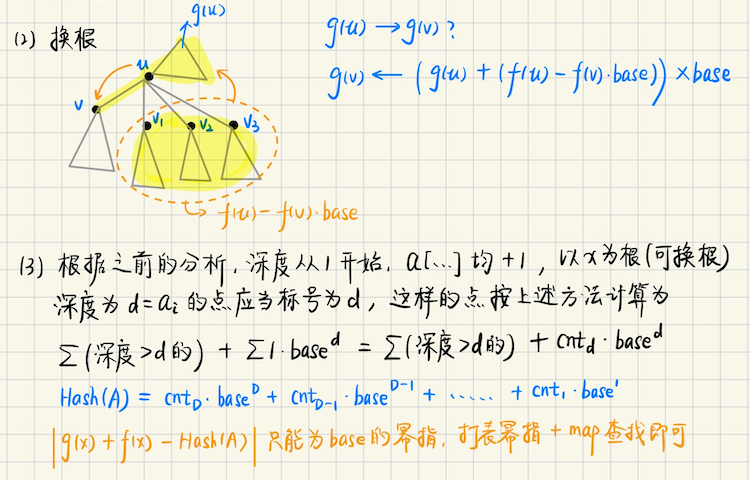 (2) 换根
g(u)
u
v
v₁
v₂
v₃
→ f(u)-f(v)·base
g(u) → g(v)?
g(v) ← (g(u) + (f(u) - f(v)·base)) × base
(3) 根据之前的分析, 深度从1开始, a[...] 均+1, 以x为根(可换根)
深度为 d=aᵢ 的点应当标号为d, 这样的点按上述方法计算为
∑(深度>d的) + ∑1·base^d = ∑(深度>d的) + cnt_d·base^d
Hash(A) = cnt_D·base^D + cnt_{D-1}·base^{D-1} + ...... + cnt₁·base¹
|g(x)+f(x)-Hash(A)| 只能为base的幂指, 打表幂指 + map 查找即可